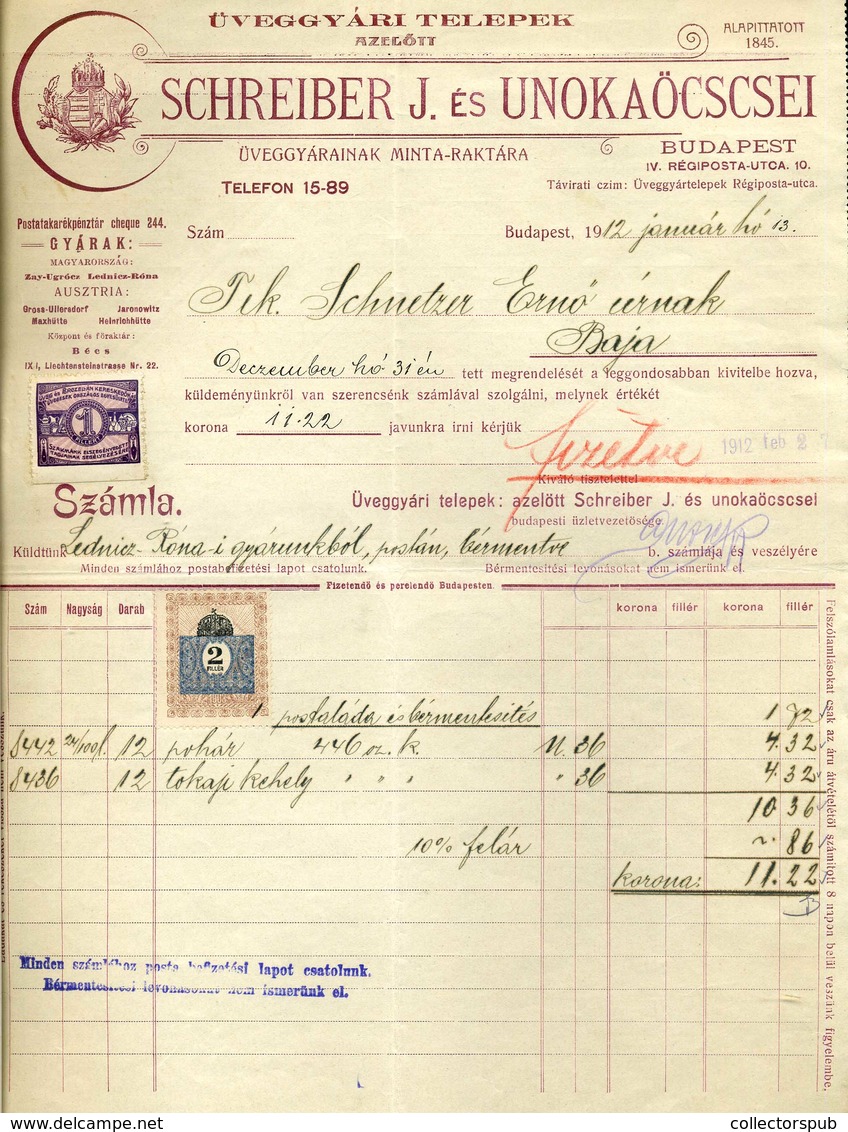 ÜVEGGYÁRI TELEPEK
AZELŐTT
ALAPITTATOTT
1845.
SCHREIBER J. ÉS UNOKAÖCSCSEI
ÜVEGGYÁRAINAK MINTA-RAKTÁRA
BUDAPEST
IV. RÉGIPOSTA-UTCA. 10.
TELEFON 15-89
Távirati czim: Üveggyártelepek Régiposta-utca.
Postatakarékpénztár cheque 244.
GYÁRAK:
MAGYARORSZÁG:
Zay-Ugrócz Lednicz-Róna
AUSZTRIA:
Gross-Ullersdorf Jaronowitz
Maxhütte Heinrichhütte
Központ és főraktár:
Bécs
IX/1, Liechtensteinstrasse Nr. 22.
Szám
Budapest, 1912 január hó 13.
Tek. Schnetzer Ernő úrnak
Baja
Deczember hó 31 én tett megrendelését a leggondosabban kivitelbe hozva,
küldeményünkről van szerencsénk számlával szolgálni, melynek értékét
korona 11.22 javunkra irni kérjük
fizetve
1912 feb 2
1
FILLÉR
Kiváló tisztelettel
Számla.
Üveggyári telepek: azelött Schreiber J. és unokaöcscsei
budapesti üzletvezetősége.
Küldtünk Lednicz-Róna-i gyárunkból, postán, bérmentve b. számlája és veszélyére
Minden számlához postabefizetési lapot csatolunk. Bérmentesitési levonásokat nem ismerünk el.
Fizetendő és perelendő Budapesten.
Szám Nagyság Darab korona fillér korona fillér
2
FILLÉR
1 postaláda és bérmentesités 1 72
8442 24/100 l. 12 pohár 446 sz. k. N. 36 4.32
8436 12 tokaji kehely " " " " 36 4.32
10 36
10% felár " 86
korona: 11.22
Minden számlához posta befizetési lapot csatolunk.
Bérmentesitési levonásokat nem ismerünk el.
Felszólamlásokat csak az áru átvételétől számitott 8 napon belül veszünk figyelembe.
www.delcampe.net
collectorspub